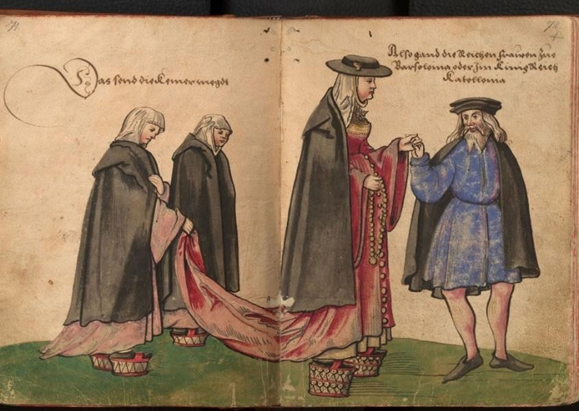 Das send die Kemermegdt
Also gand die Reichen frauwen zue
Barsolonia oder jm Küng Reich
Katollonia